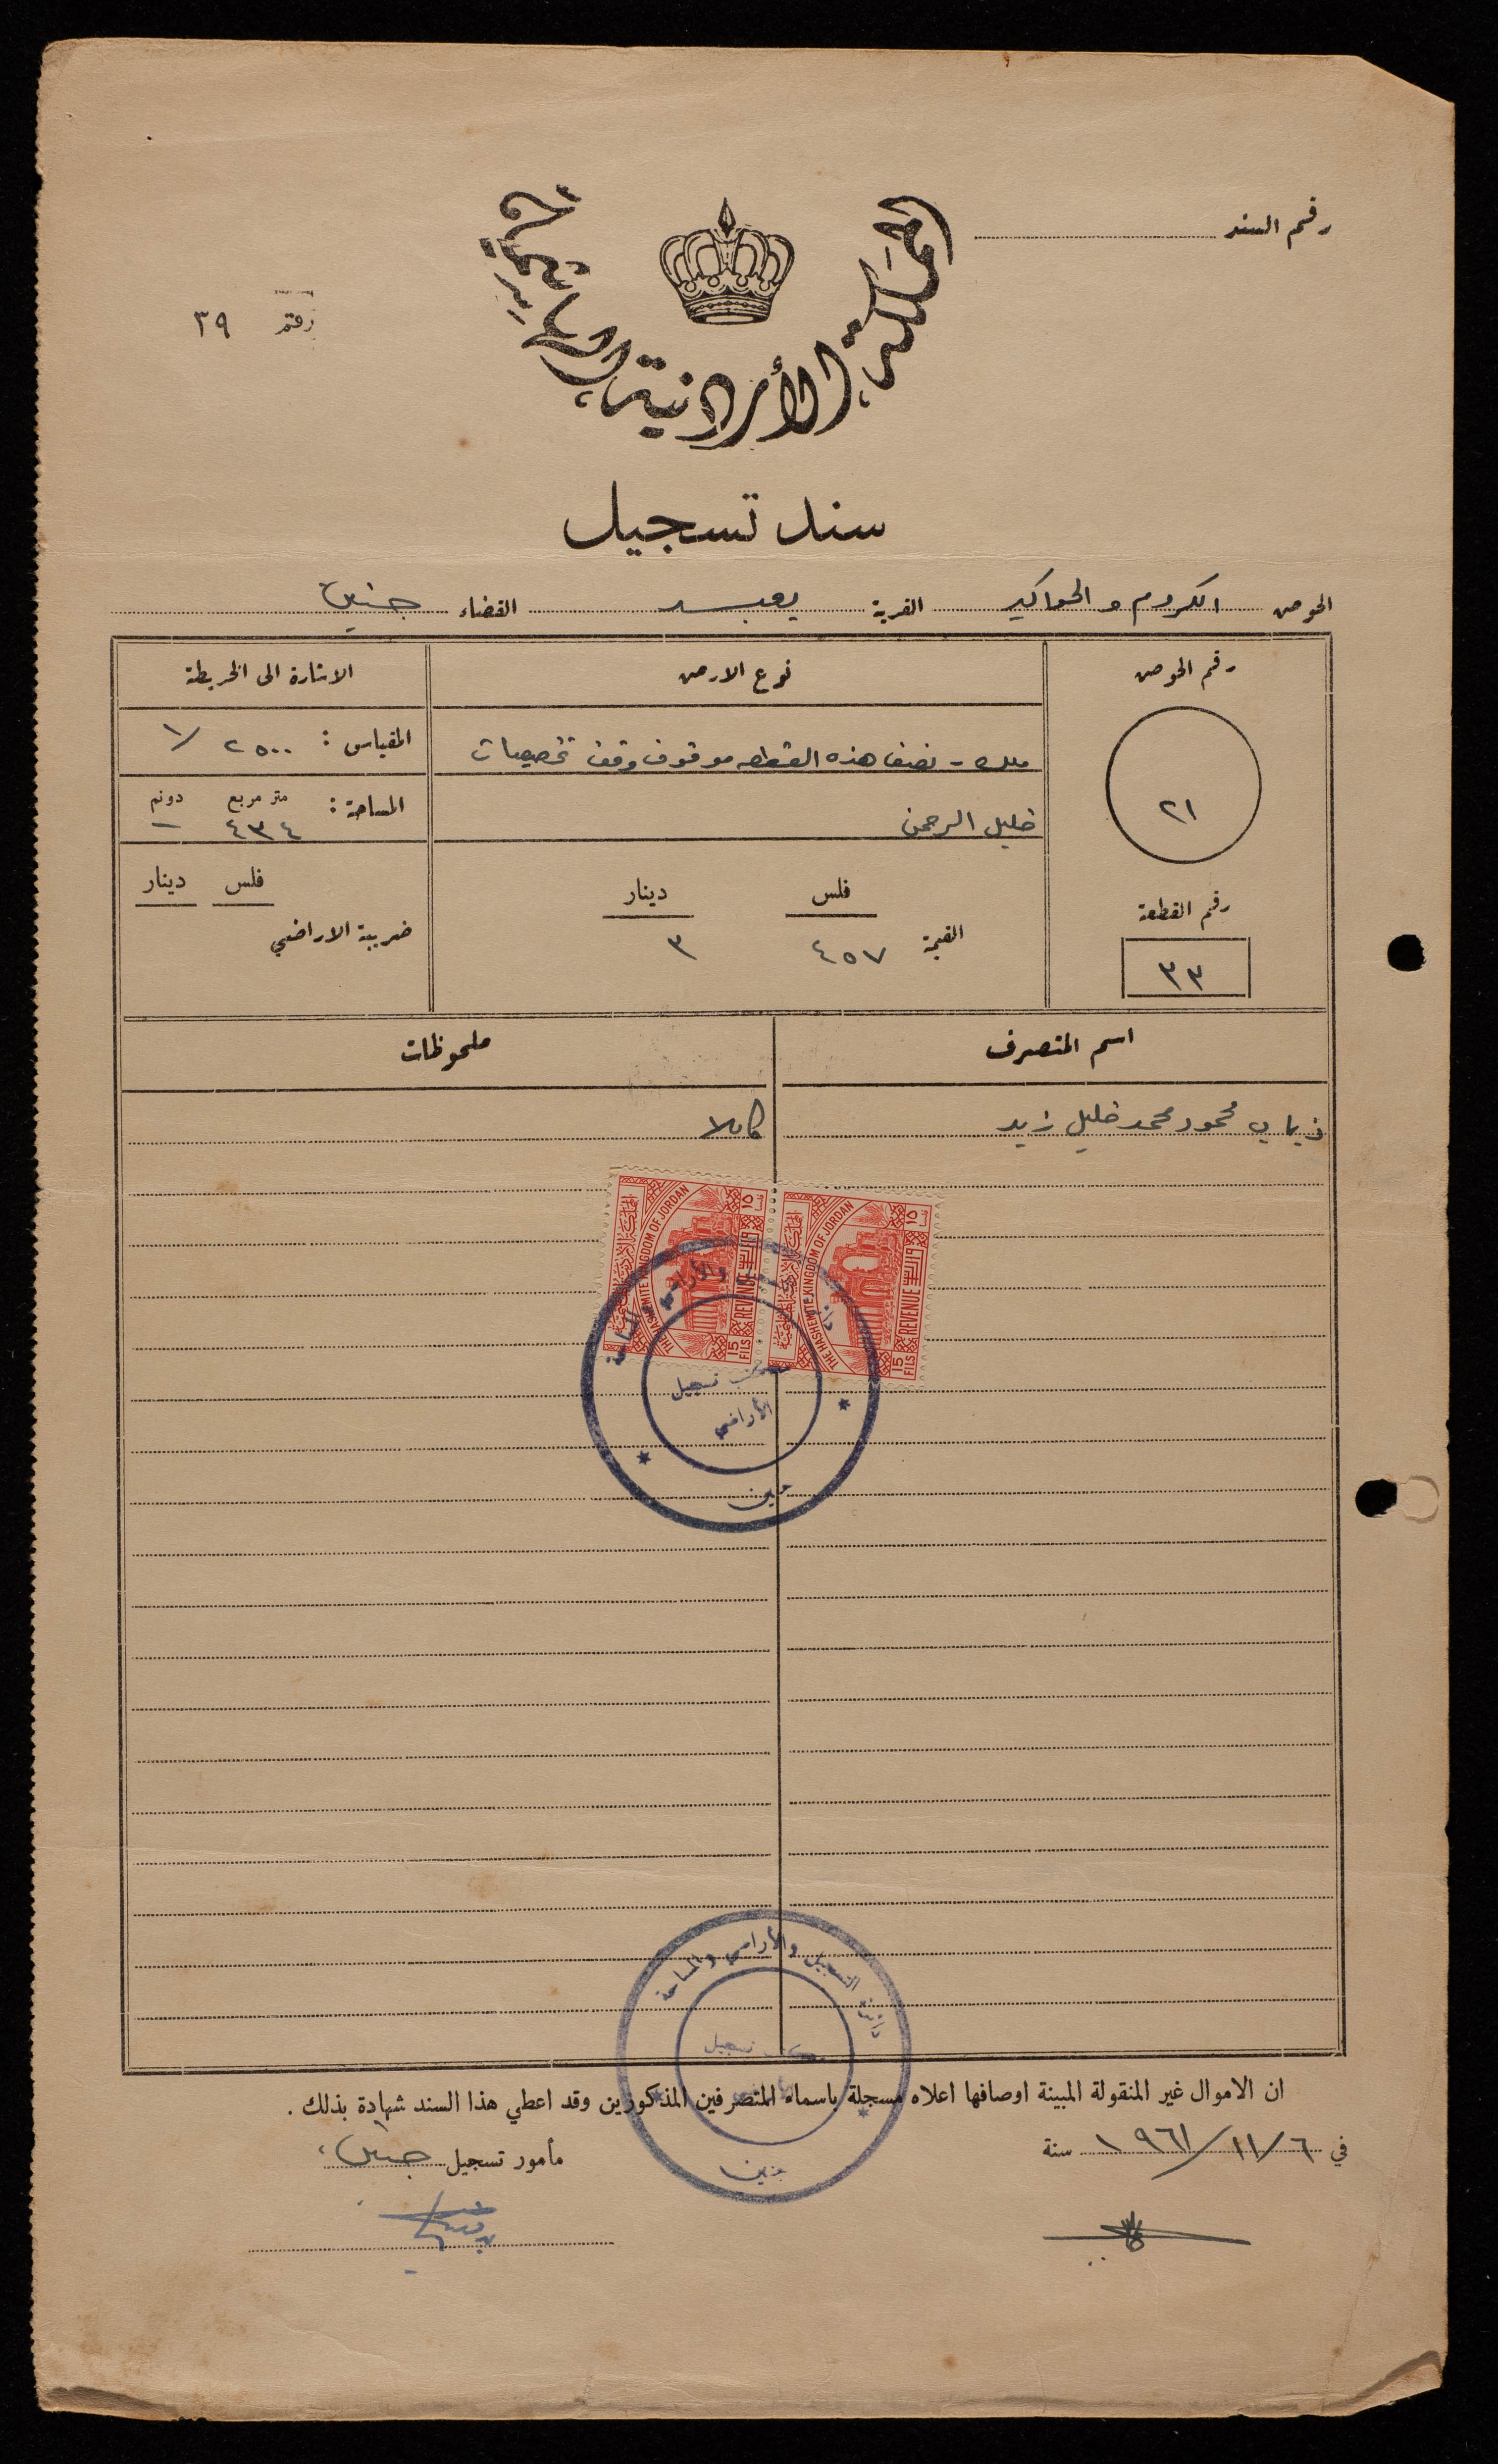 رقم السند
المملكة الأردنية الهاشمية
رقم ٣٩
سند تسجيل
الحوض الكروم والحواكير القرية يعبد القضاء جنين
رقم الحوض نوع الارض الاشارة الى الخريطة
٢١
ملك - نصف هذه القطعه موقوف وقف تخصيصات
خليل الرحمن
المقياس : ٢٥٠٠ / ١
المساحة : متر مربع دونم
٤٣٤ -
رقم القطعة
٣٣
فلس دينار
القيمة ٤٥٧ ٣
فلس دينار
ضريبة الاراضي
اسم المتصرف ملحوظات
ذياب محمود محمد خليل زيد كاملا
المملكة الأردنية الهاشمية
THE HASHEMITE KINGDOM OF JORDAN
١٥
REVENUE
15 FILS
المملكة الأردنية الهاشمية
THE HASHEMITE KINGDOM OF JORDAN
١٥
REVENUE
15 FILS
دائرة التسجيل والأراضي والمساحة
مكتب تسجيل
الأراضي
جنين
دائرة التسجيل والأراضي والمساحة
مكتب تسجيل
جنين
ان الاموال غير المنقولة المبينة اوصافها اعلاه مسجلة باسماء المتصرفين المذكورين وقد اعطي هذا السند شهادة بذلك .
في ٦/١١/١٩٦١ سنة
مأمور تسجيل جنين